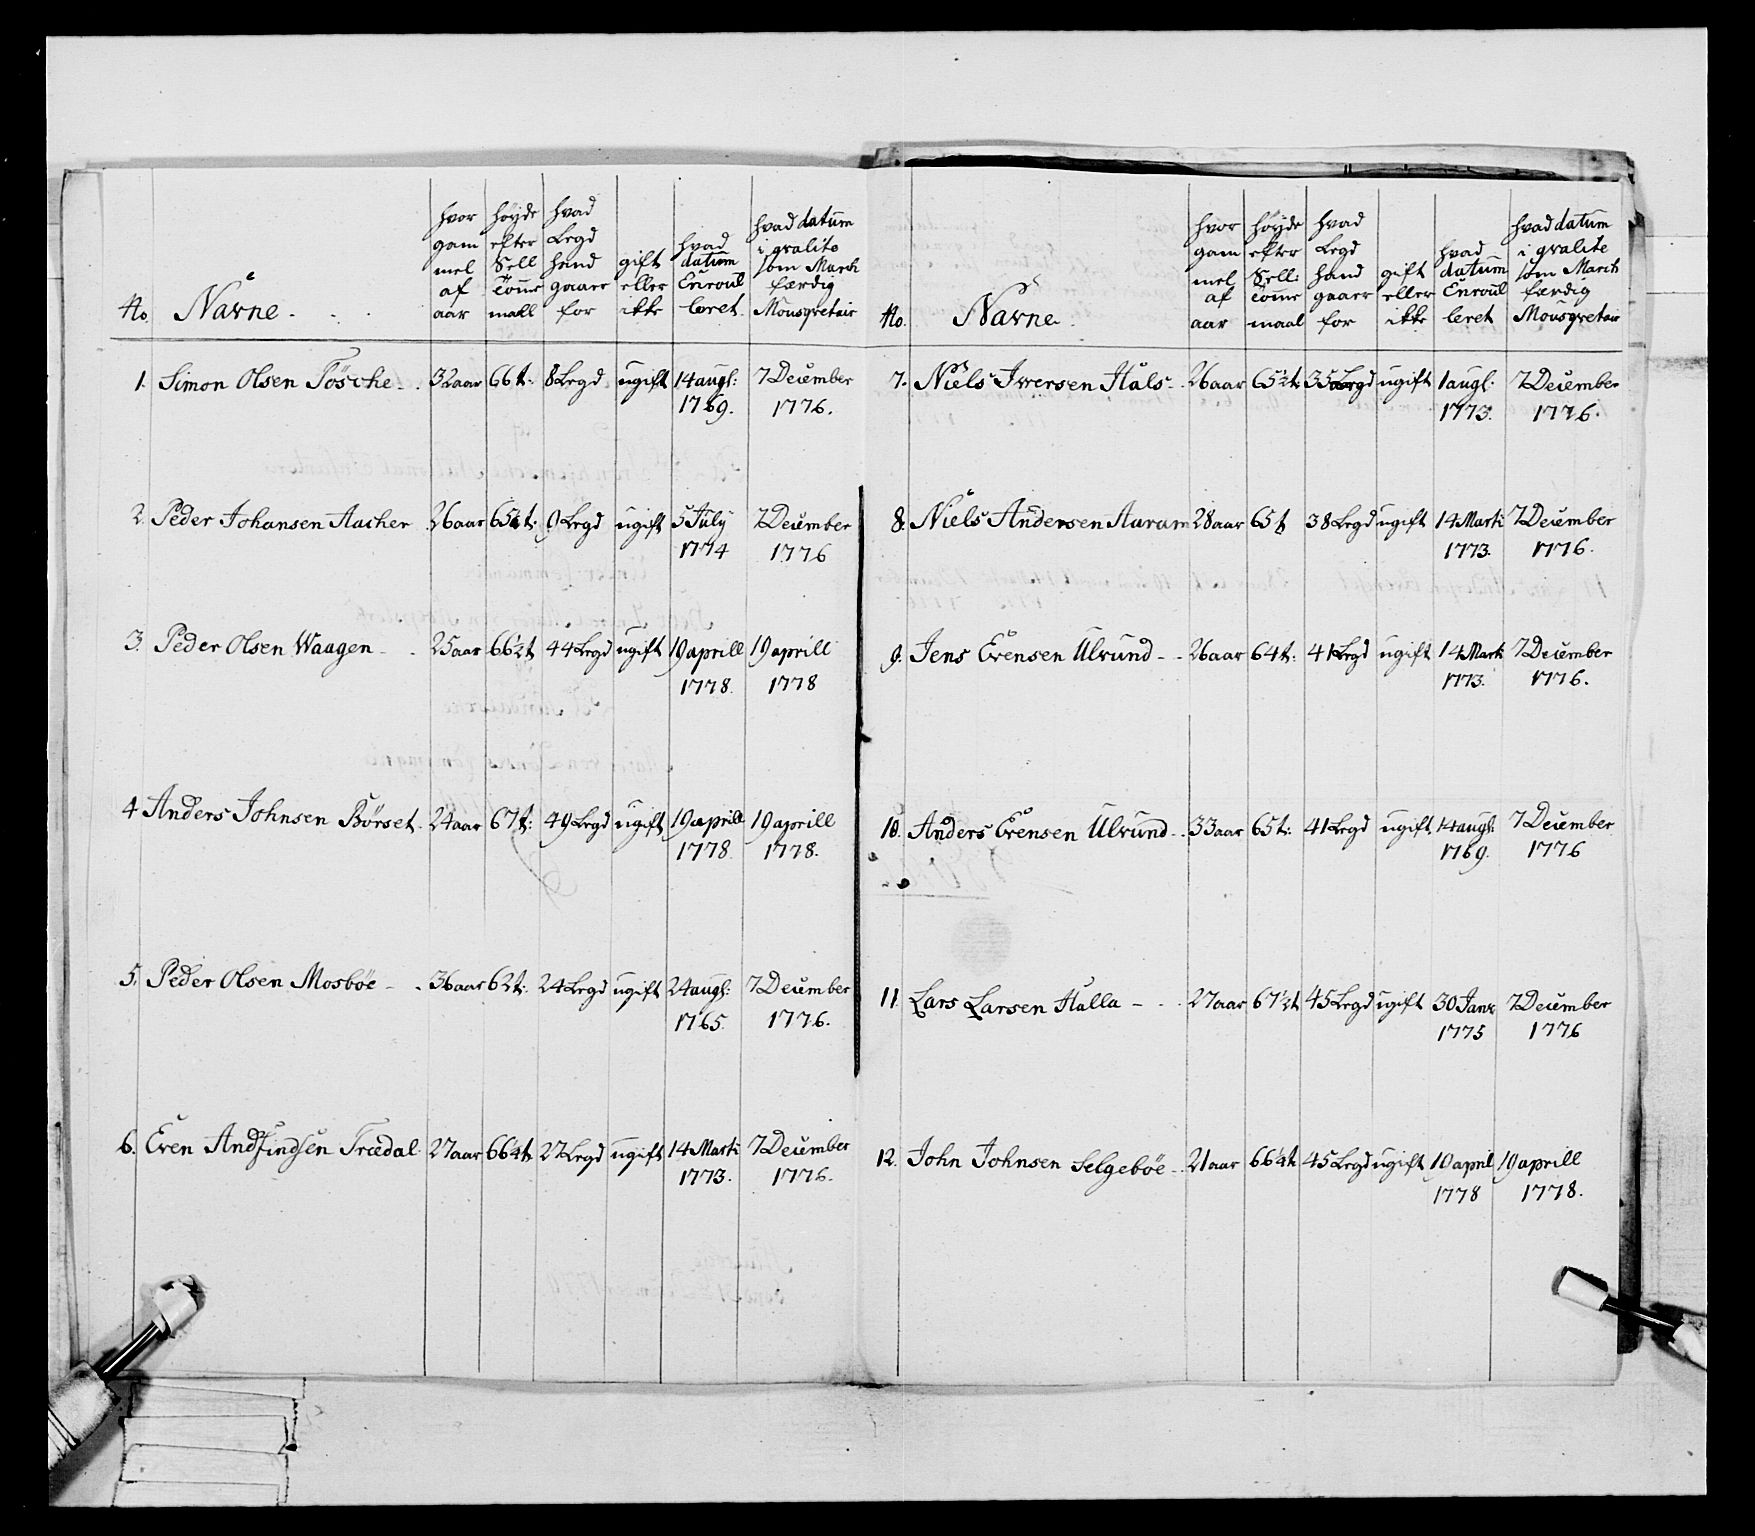 No. Navne. hvor gam mel af aar høyde efter Sell Tome mall hvad Legd hand gaaer for gift eller ikke hvad datum Enroul leret hvad datum i qvalite som March færdig Mousqvetair
1. Simon Olsen Tösche 32 aar 66 t. 8 Legd ugift 14 augl: 1769. 7 December 1776.
2. Peder Johansen Aacher 26 aar 9 Legd ugift 5 July 1774 7 December 1776
3. Peder Olsen Waagen 25 aar 66½ t 44 Legd ugift 19 aprill 1778. 19 aprill 1778
4 Anders Johnsen Börset 24 aar 67 t: 49 Legd ugift 19 aprill 1778. 19 aprill 1778.
5. Peder Olsen Mosböe 36 aar 62 t: 24 Legd ugift 24 augl: 1765. 7 December 1776.
6. Even Andfindsen Trædal 27 aar 66¼ t 27 Legd ugift 14 Marti 1773. 7 December 1776.
No. Navne. hvor gam mel af aar høyde efter Sell: Tome maal hvad Legd hand gaaer for gift eller ikke hvad datum Enroul leret hvad datum i qvalite som March færdig Mousqvetair
7. Niels Iversen Hals 26 aar 65½ t: 35 Legd ugift 1 augl. 1773. 7 December 1776.
8. Niels Andersen Aaram 28 aar 65 t 38 Legd ugift 14 Marti 1773. 7 December 1776.
9. Jens Evensen Ulvund 26 aar 64 t: 41 Legd ugift 14 Marti 1773. 7 December 1776.
10. Anders Evensen Ulvund 33 aar 65 t: 41 Legd ugift 14 augl: 1769. 7 December 1776
11. Lars Larsen Halla 27 aar 67½ t 45 Legd ugift 30 Janr 1775 7 December 1776
12. John Johnsen Selgeböe 21 aar 66¼ t 45 Legd ugift 19 april 1778 19 aprill 1778.